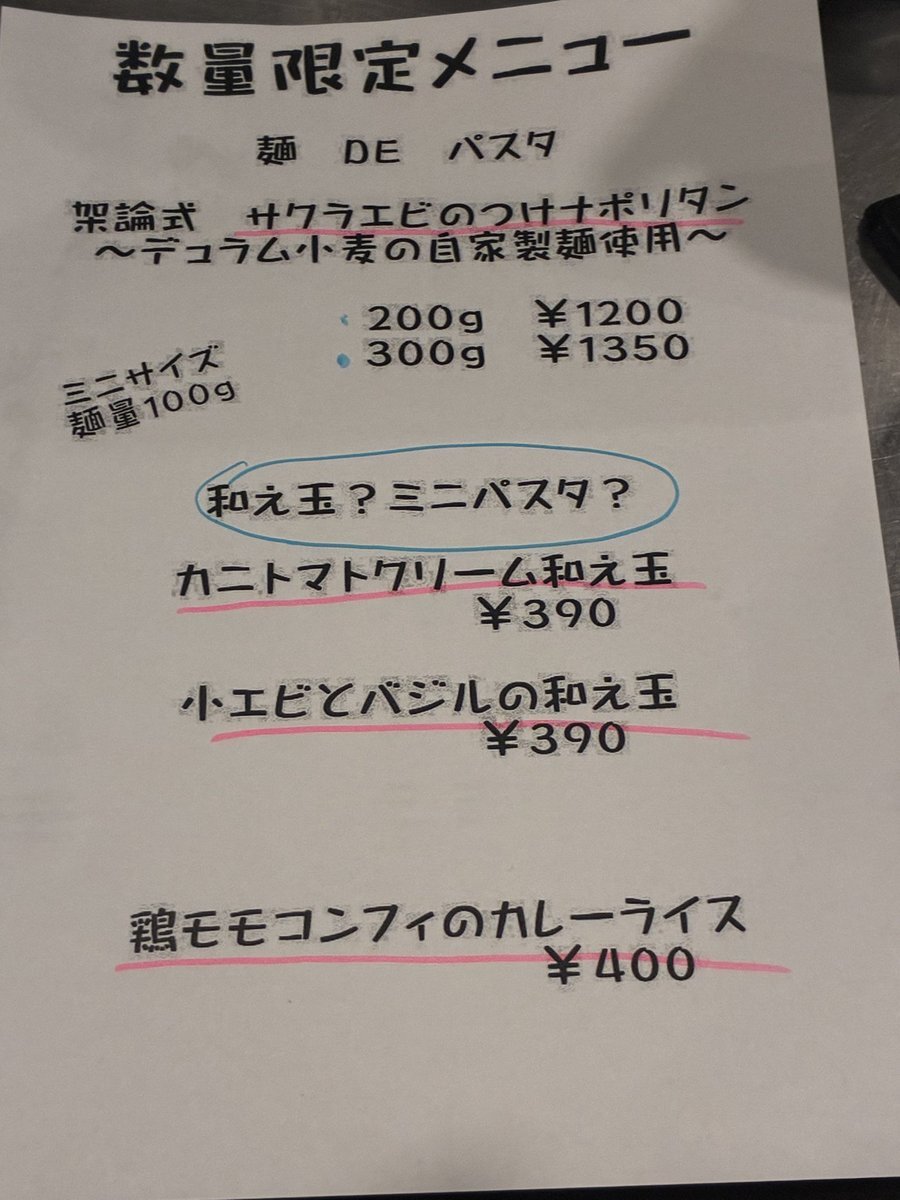 数量限定メニュー
麺 DE パスタ
架論式 サクラエビのつけナポリタン
～デュラム小麦の自家製麺使用～
・200g ¥1200
・300g ¥1350
ミニサイズ
麺量100g
和え玉？ミニパスタ？
カニトマトクリーム和え玉
¥390
小エビとバジルの和え玉
¥390
鶏モモコンフィのカレーライス
¥400